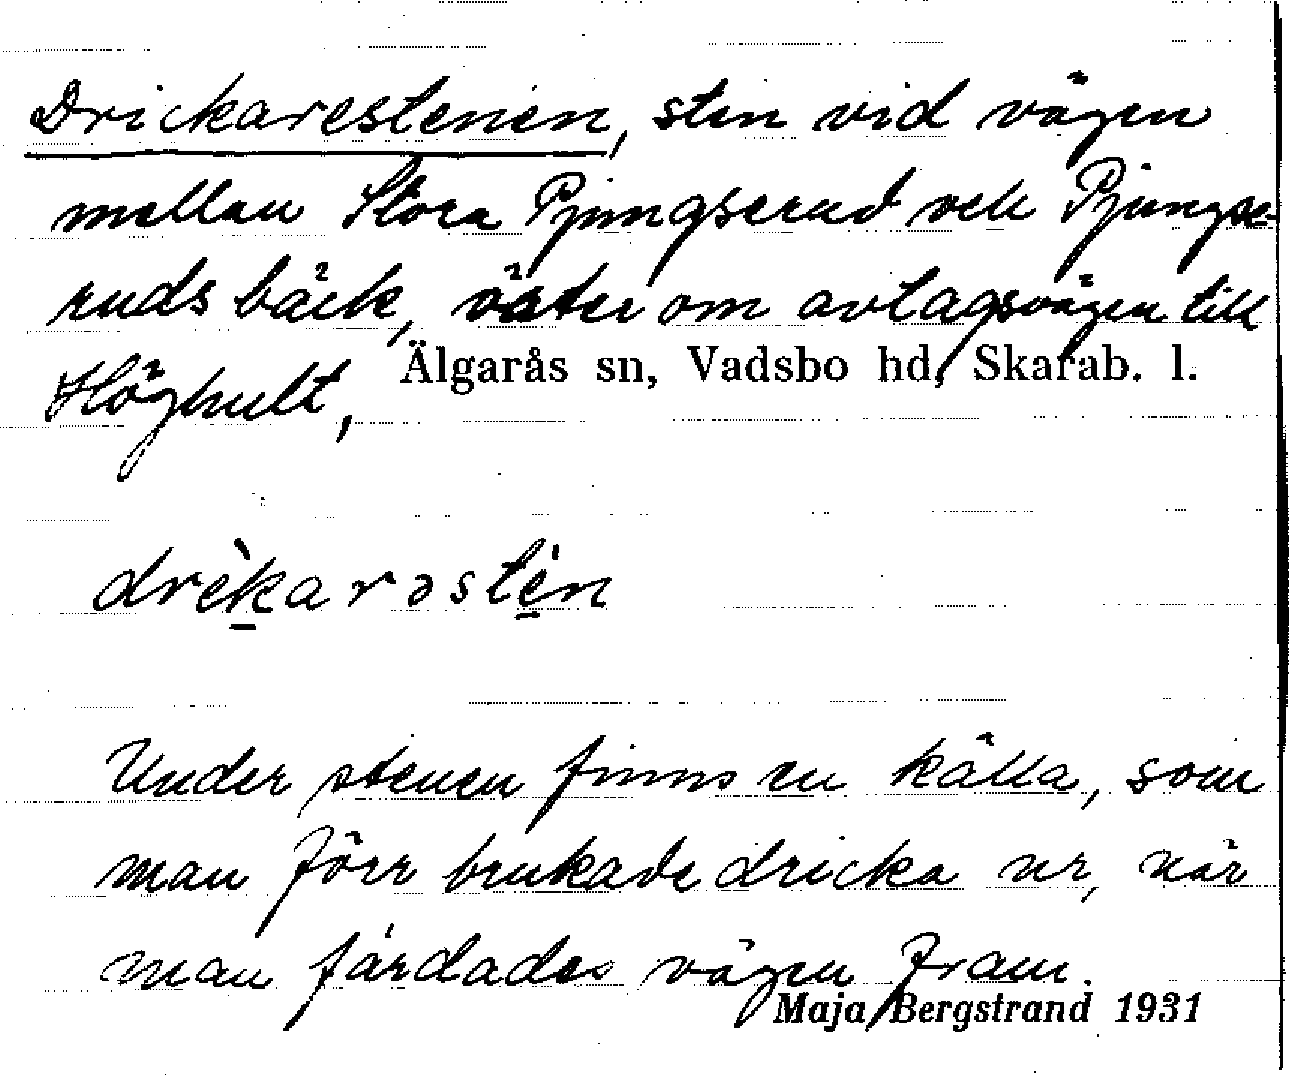 Drickarestenen, sten vid vägen
mellan Stora Pjungserud och Pjungse-
ruds bäck, väster om avtagsvägen till
Höghult,
Älgarås sn, Vadsbo hd, Skarab. l.
drèkarəstén
Under stenen finns en källa, som
man förr brukade dricka ur, när
man färdades vägen fram.
Maja Bergstrand 1931